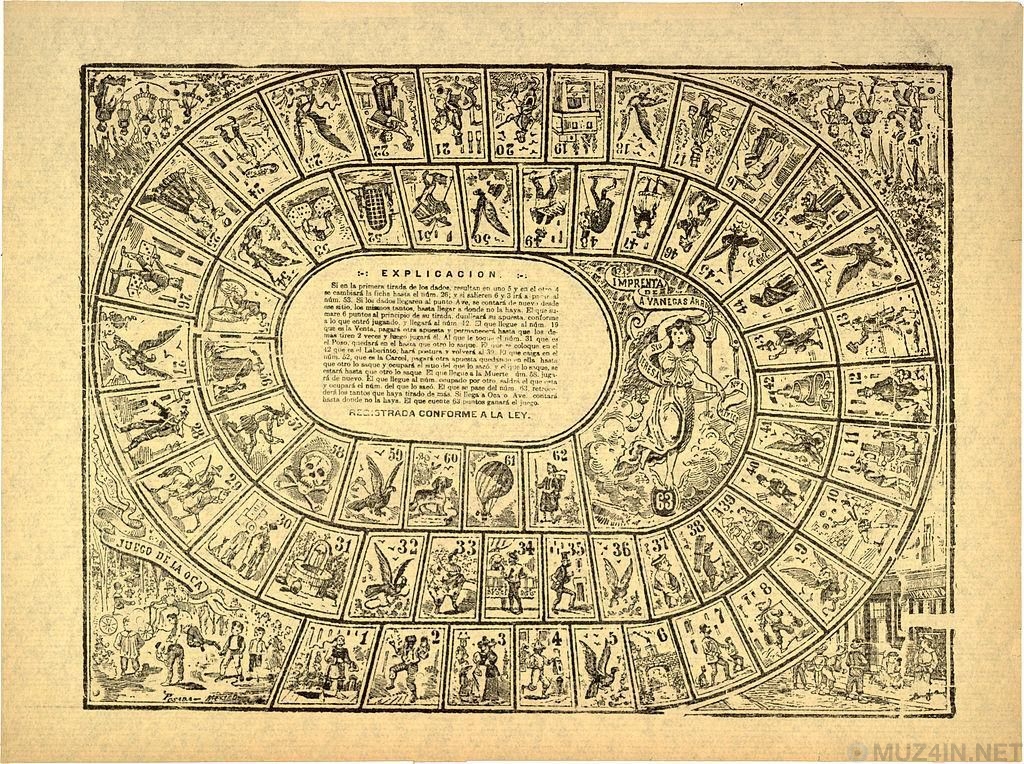 :-: EXPLICACION. :-:
Si en la primera tirada de los dados, resultan en uno 5 y en el otro 4
se cambiará la ficha hasta el núm. 26; y si salieren 6 y 3 irá a parar al
núm. 53. Si los dados llegaren al punto Ave, se contará de nuevo desde
ese sitio, los mismos tantos, hasta llegar a donde no la haya. El que su-
mare 6 puntos al principio de su tirada, duplicará su apuesta, conforme
a lo que entró jugando, y llegará al núm. 12. El que llegue al núm. 19
que es la Venta, pagará otra apuesta y permanecerá hasta que los de-
mas tiren 2 veces y luego jugará él. Al que le toque el núm. 31 que es
el Poso, quedará en él hasta que otro lo saque. El que se coloque en el
42 que es el Laborinto, hará postura y volverá al 39. El que caiga en el
núm. 52, que es la Carcel, pagará otra apuesta quedando en ella hasta
que otro lo saque y ocupará el sitio del que lo sazó, y el que lo saque, se
estará hasta que otro lo saque. El que llegue a la Muerte núm. 58, juga-
rá de nuevo. El que llegue al núm. ocupado por otro, saldrá el que esta
y ocupará el núm. del que lo sazó. El que se pase del núm. 63, retroce-
derá los tantos que haya tirado de más. Si llega a Oca o Ave, contará
hasta donde no la haya. El que cuente 63 puntos ganará el juego.
REGISTRADA CONFORME A LA LEY.
IMPRENTA
DE
A. VANEGAS ARR
JUEGO DE LA OCA
1
2
3
4
5
6
7
8
9
10
11
12
14
15
16
17
18
20
21
22
23
24
26
29
30
31
32
33
34
35
36
37
38
39
40
41
42
44
45
46
47
48
49
50
51
52
53
54
58
59
60
61
62
63
MUZ4IN.NET